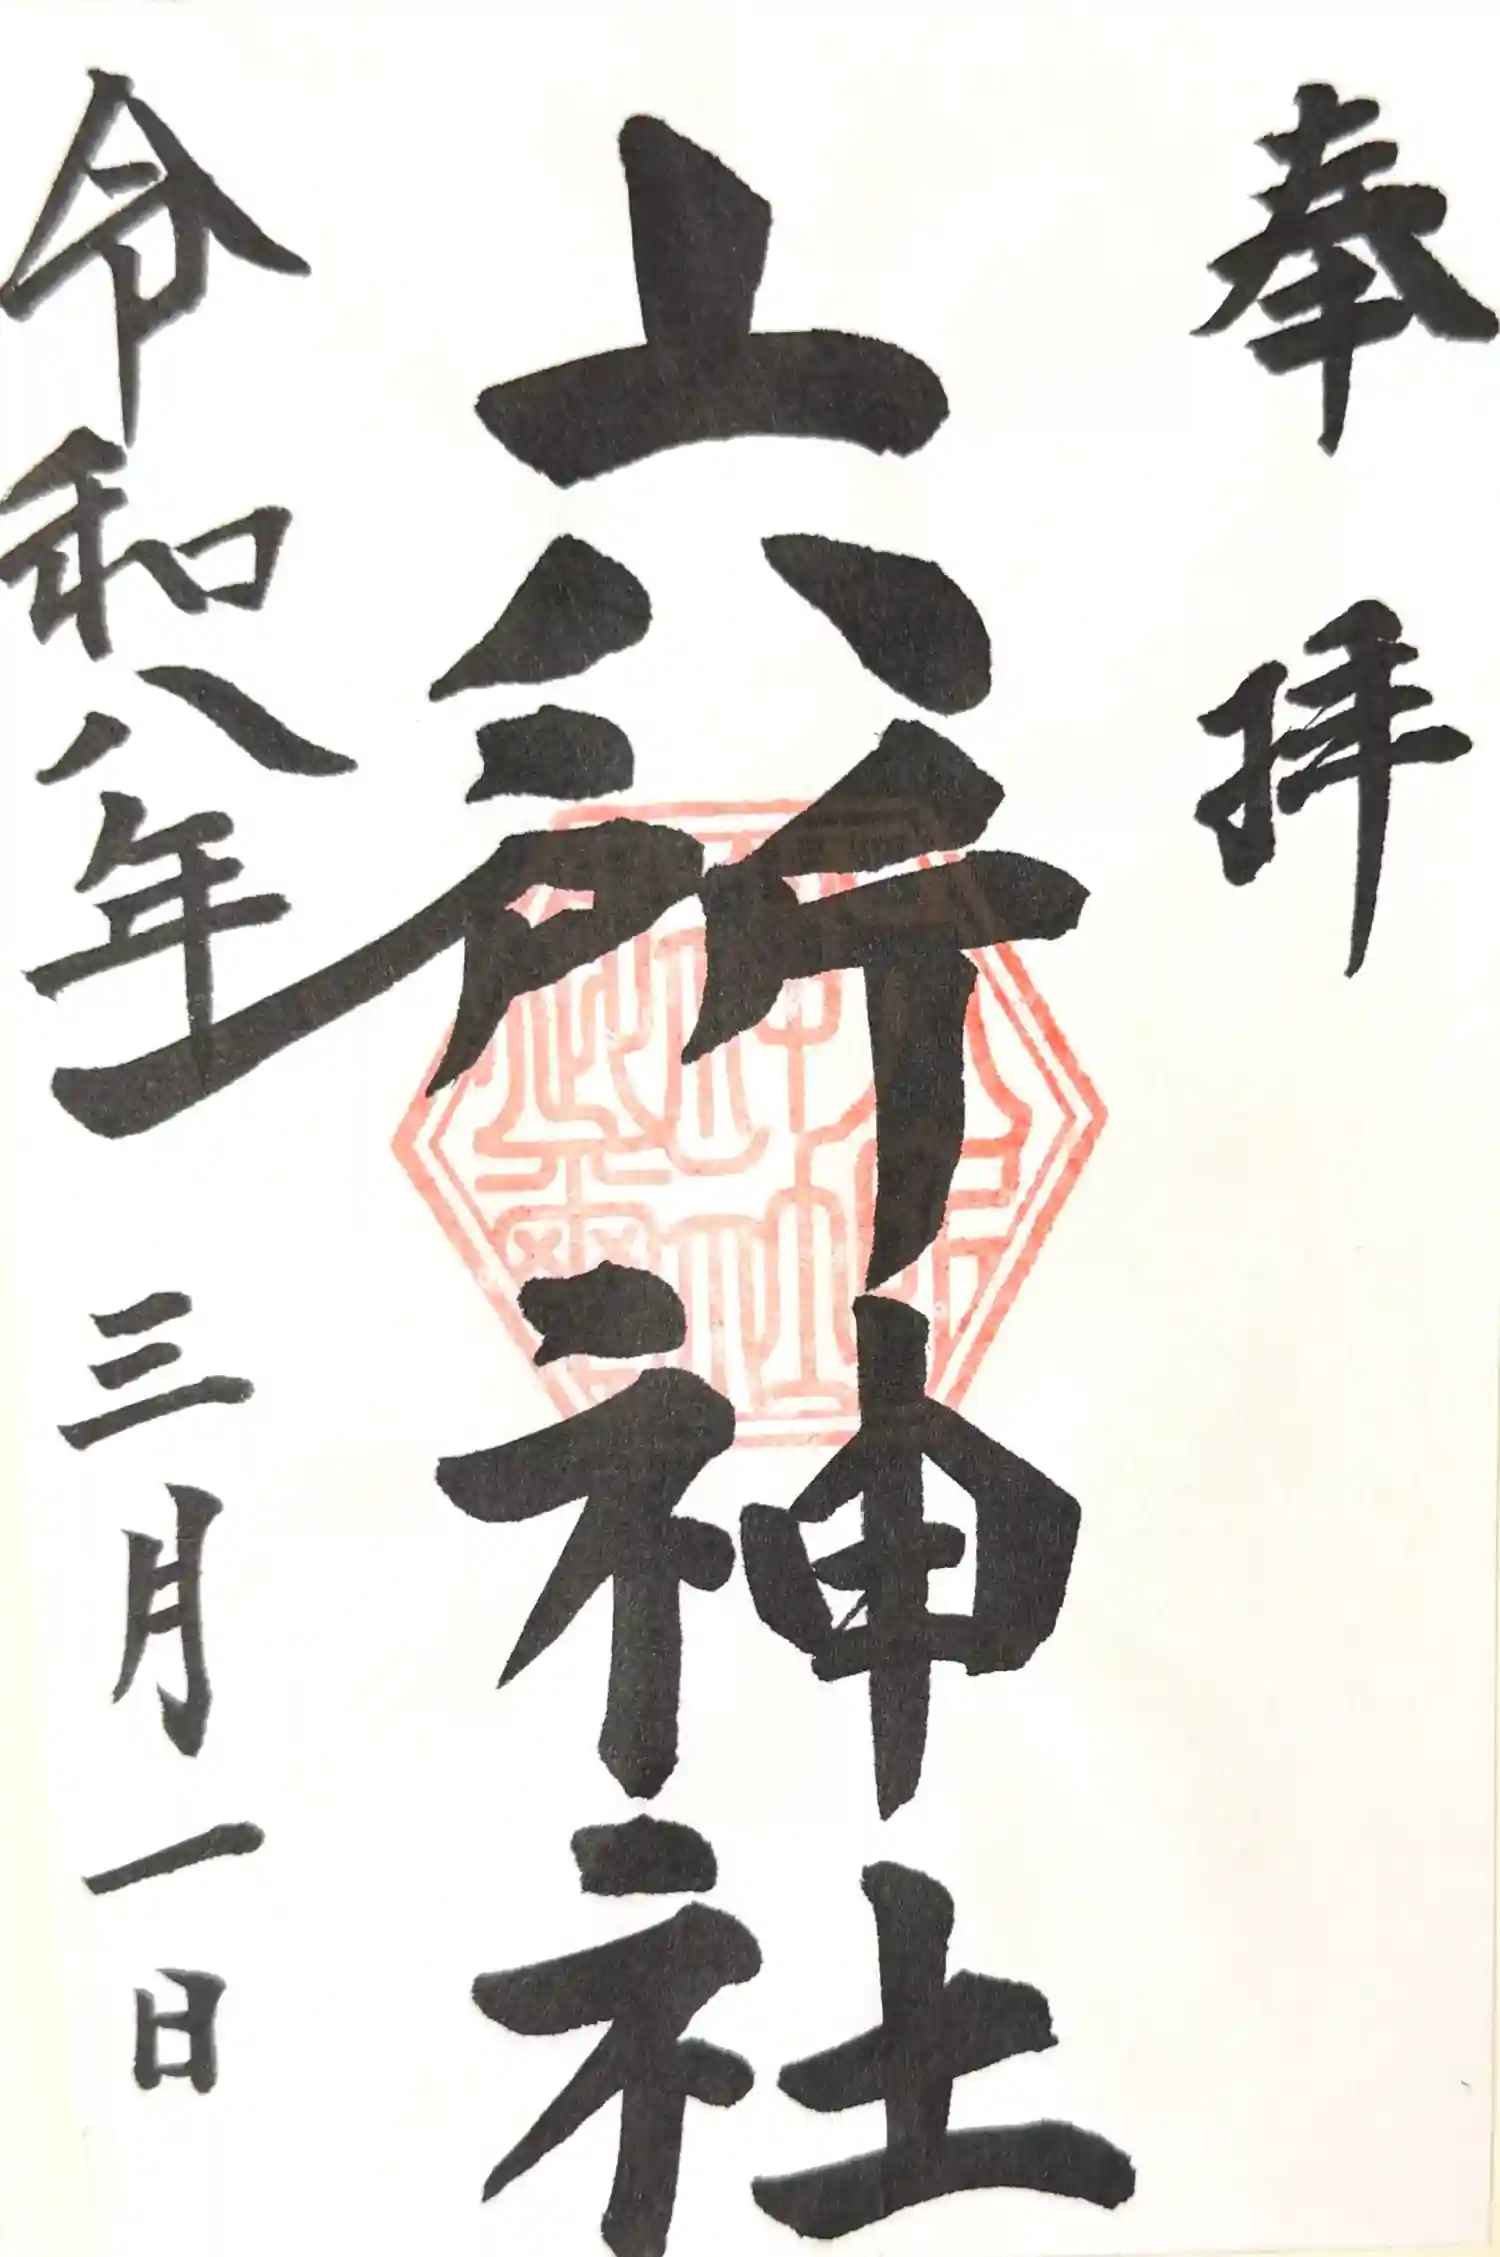 奉拝
六所神社
令和八年三月一日